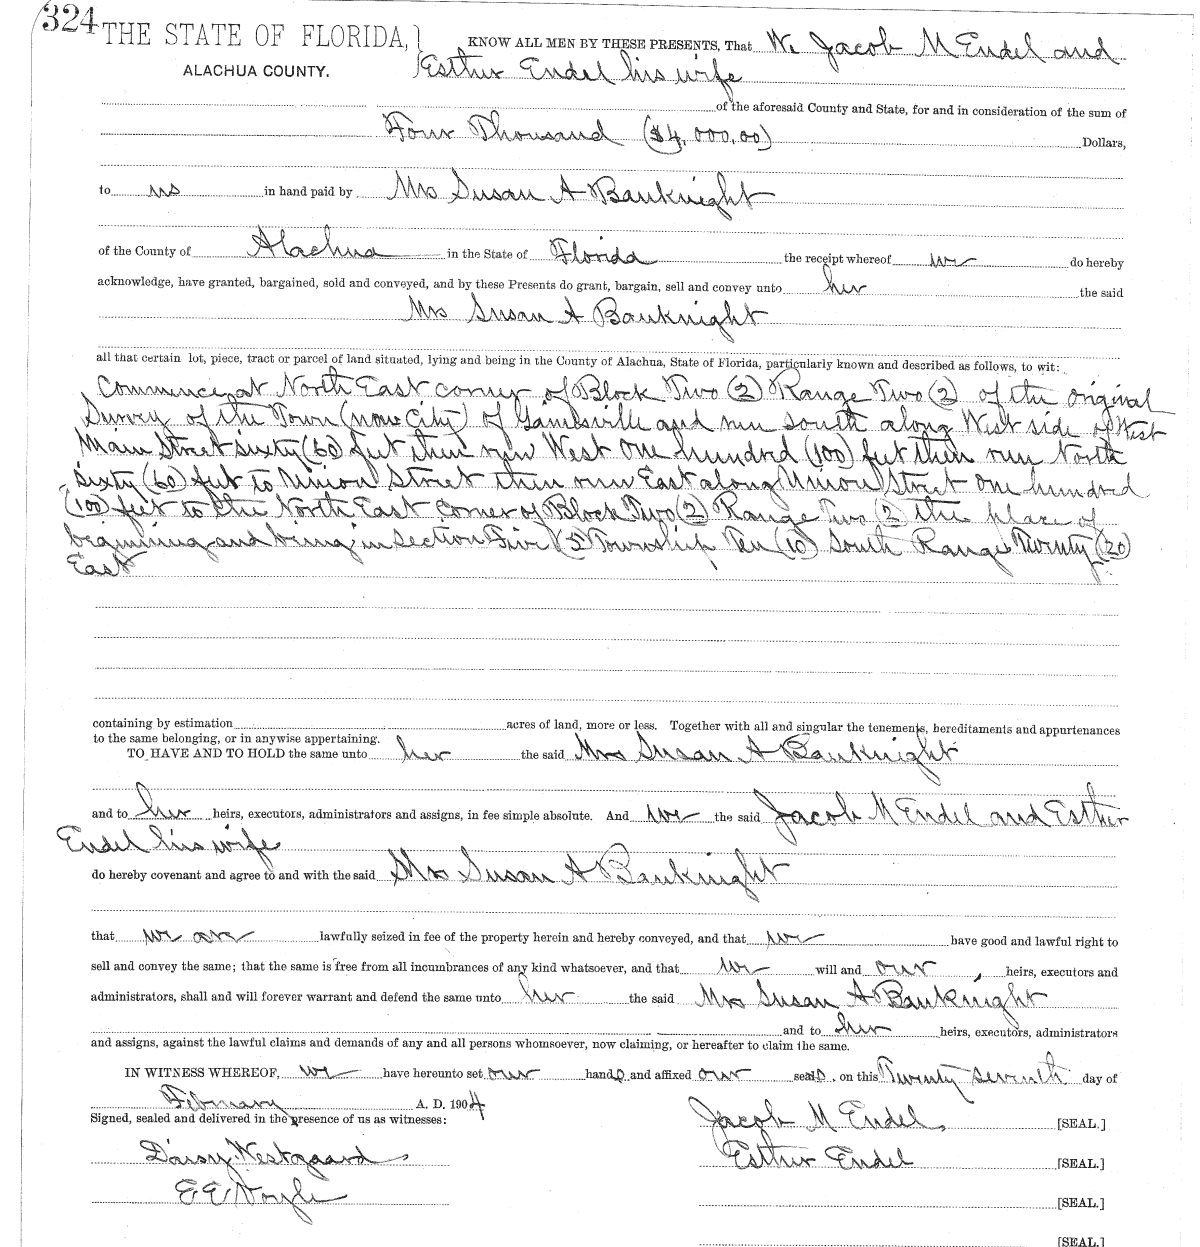 324
THE STATE OF FLORIDA, } KNOW ALL MEN BY THESE PRESENTS, That We Jacob M Endel and
ALACHUA COUNTY. Esther Endel his wife
of the aforesaid County and State, for and in consideration of the sum of
Four Thousand ($4,000,00) Dollars,
to us in hand paid by Mrs Susan A Bauknight
of the County of Alachua in the State of Florida the receipt whereof we do hereby
acknowledge, have granted, bargained, sold and conveyed, and by these Presents do grant, bargain, sell and convey unto her the said
Mrs Susan A Bauknight
all that certain lot, piece, tract or parcel of land situated, lying and being in the County of Alachua, State of Florida, particularly known and described as follows, to wit:
Commence at North East corner of Block Two (2) Range Two (2) of the original
Survey of the Town (now City) of Gainesville and run south along West side of West
Main Street sixty (60) feet then run West One hundred (100) feet then run North
sixty (60) feet to Union Street then run East along Union Street One hundred
(100) feet to the North East corner of Block Two (2) Range Two (2) the place of
beginning and being in Section Five (5) Township Ten (10) South Range Twenty (20)
East
containing by estimation acres of land, more or less. Together with all and singular the tenements, hereditaments and appurtenances
to the same belonging, or in anywise appertaining.
TO HAVE AND TO HOLD the same unto her the said Mrs Susan A Bauknight
and to her heirs, executors, administrators and assigns, in fee simple absolute. And we the said Jacob M Endel and Esther
Endel his wife
do hereby covenant and agree to and with the said Mrs Susan A Bauknight
that we are lawfully seized in fee of the property herein and hereby conveyed, and that we have good and lawful right to
sell and convey the same; that the same is free from all incumbrances of any kind whatsoever, and that we will and our, heirs, executors and
administrators, shall and will forever warrant and defend the same unto her the said Mrs Susan A Bauknight
and to her heirs, executors, administrators
and assigns, against the lawful claims and demands of any and all persons whomsoever, now claiming, or hereafter to claim the same.
IN WITNESS WHEREOF, we have hereunto set our hands and affixed our seals, on this Twenty seventh day of
February A. D. 1904
Signed, sealed and delivered in the presence of us as witnesses: Jacob M Endel, [SEAL.]
Daisy Westgaard, Esther Endel [SEAL.]
E E Voyle [SEAL.]
[SEAL.]